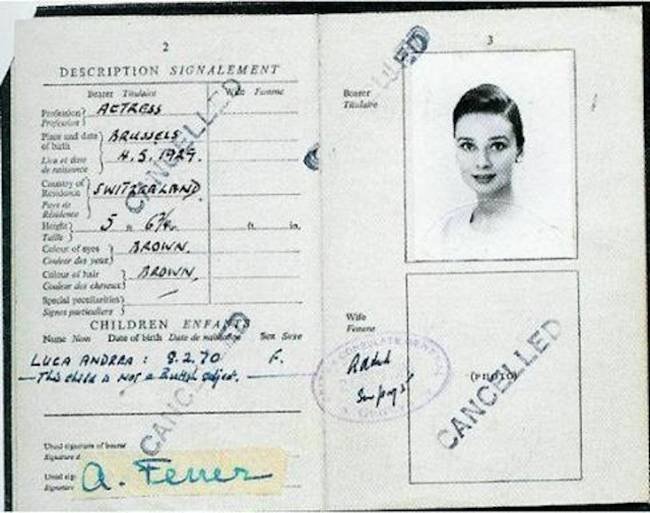 2
DESCRIPTION SIGNALEMENT
Bearer Titulaire Wife Femme
Profession Profession } ACTRESS
Place and date of birth } BRUSSELS
Lieu et date de naissance } 4.5.1929.
Country of Residence } SWITZERLAND
Pays de Résidence
Height Taille } 5 ft. 6 ft. in.
Colour of eyes Couleur des yeux } BROWN.
Colour of hair Couleur des cheveux } BROWN.
Special peculiarities Signes particuliers }
CHILDREN ENFANTS
Name Nom Date of birth Date de naissance Sex Sexe
LUCA ANDREA: 8.2.70 F.
This child is not a British subject.
Usual signature of bearer
Signature d
Usual sig
Signature
A. Ferrer
CANCELLED
CANCELLED
3
Bearer
Titulaire
CANCELLED
Wife
Femme
(PHOTO)
CANCELLED